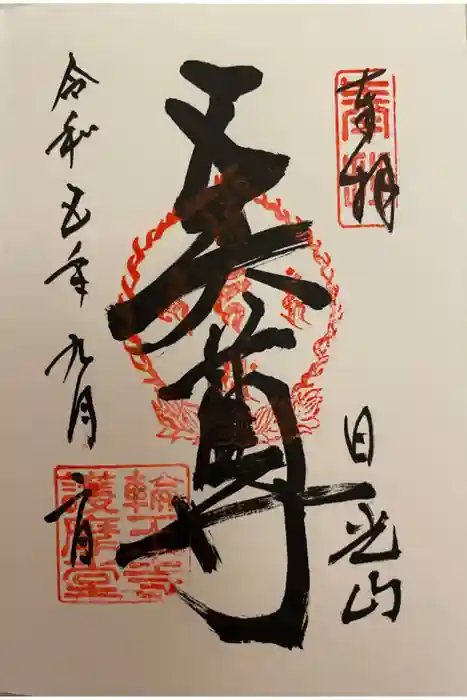 奉拝
日光山
五大尊
輪王寺
護摩堂
令和五年九月 日